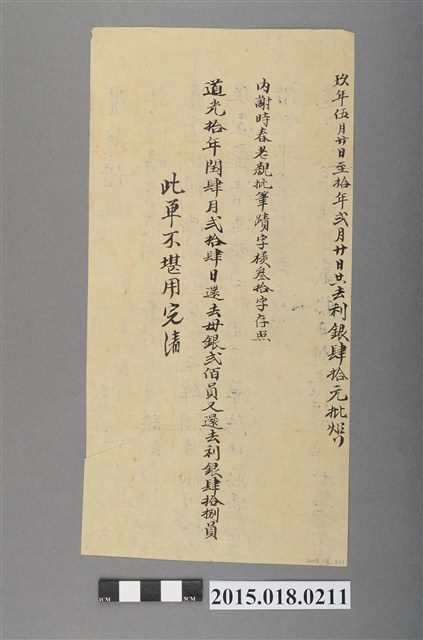 玖年伍月廿日至拾年弍月廿日止去利銀肆拾元批炤
內謝時春老親批筆蹟字樣叁拾字存照
道光拾年閏肆月弍拾肆日還去母銀弍佰員又還去利銀肆拾捌員
此單不堪用完清
1CM
5CM
2015.018.0211